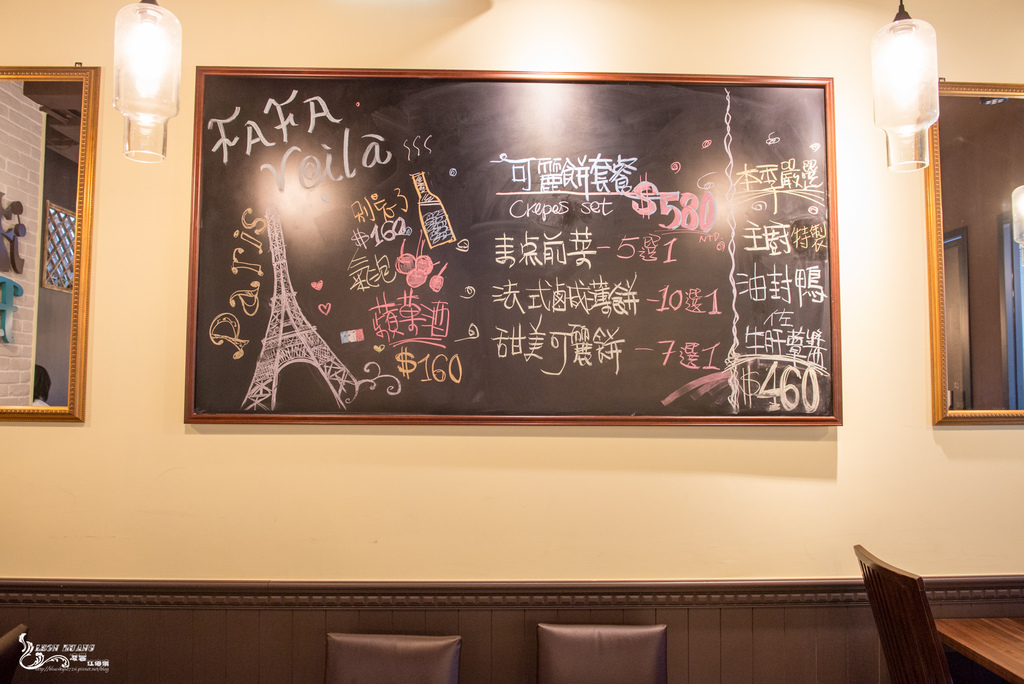 FAFA
Voilà
Paris
別忘了
$160
氣泡
蘋菓酒
$160
可麗餅套餐
Crepes set
$580
NTD.
美点前菜-5選1
法式鹹薄餅-10選1
甜美可麗餅-7選1
本季嚴選
主廚特製
油封鴨
佐
牛肝蕈醬
$460
LEON HUANG